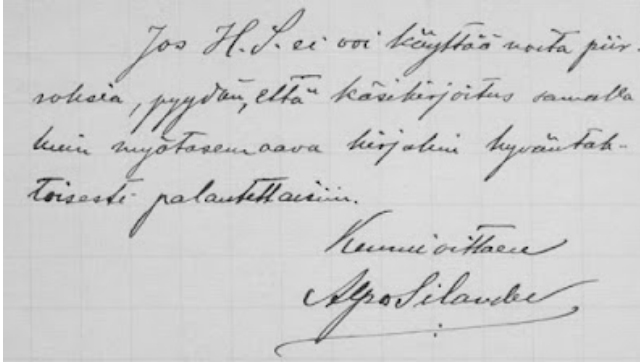 Jos H. S. ei voi käyttää noita piir-
roksia, pyydän, että käsikirjoitus samalla
kuin myötäsemaava kirjakin hyväntah-
toisesti palautettaisiin.
Kunnioittaen
Alpo Silander